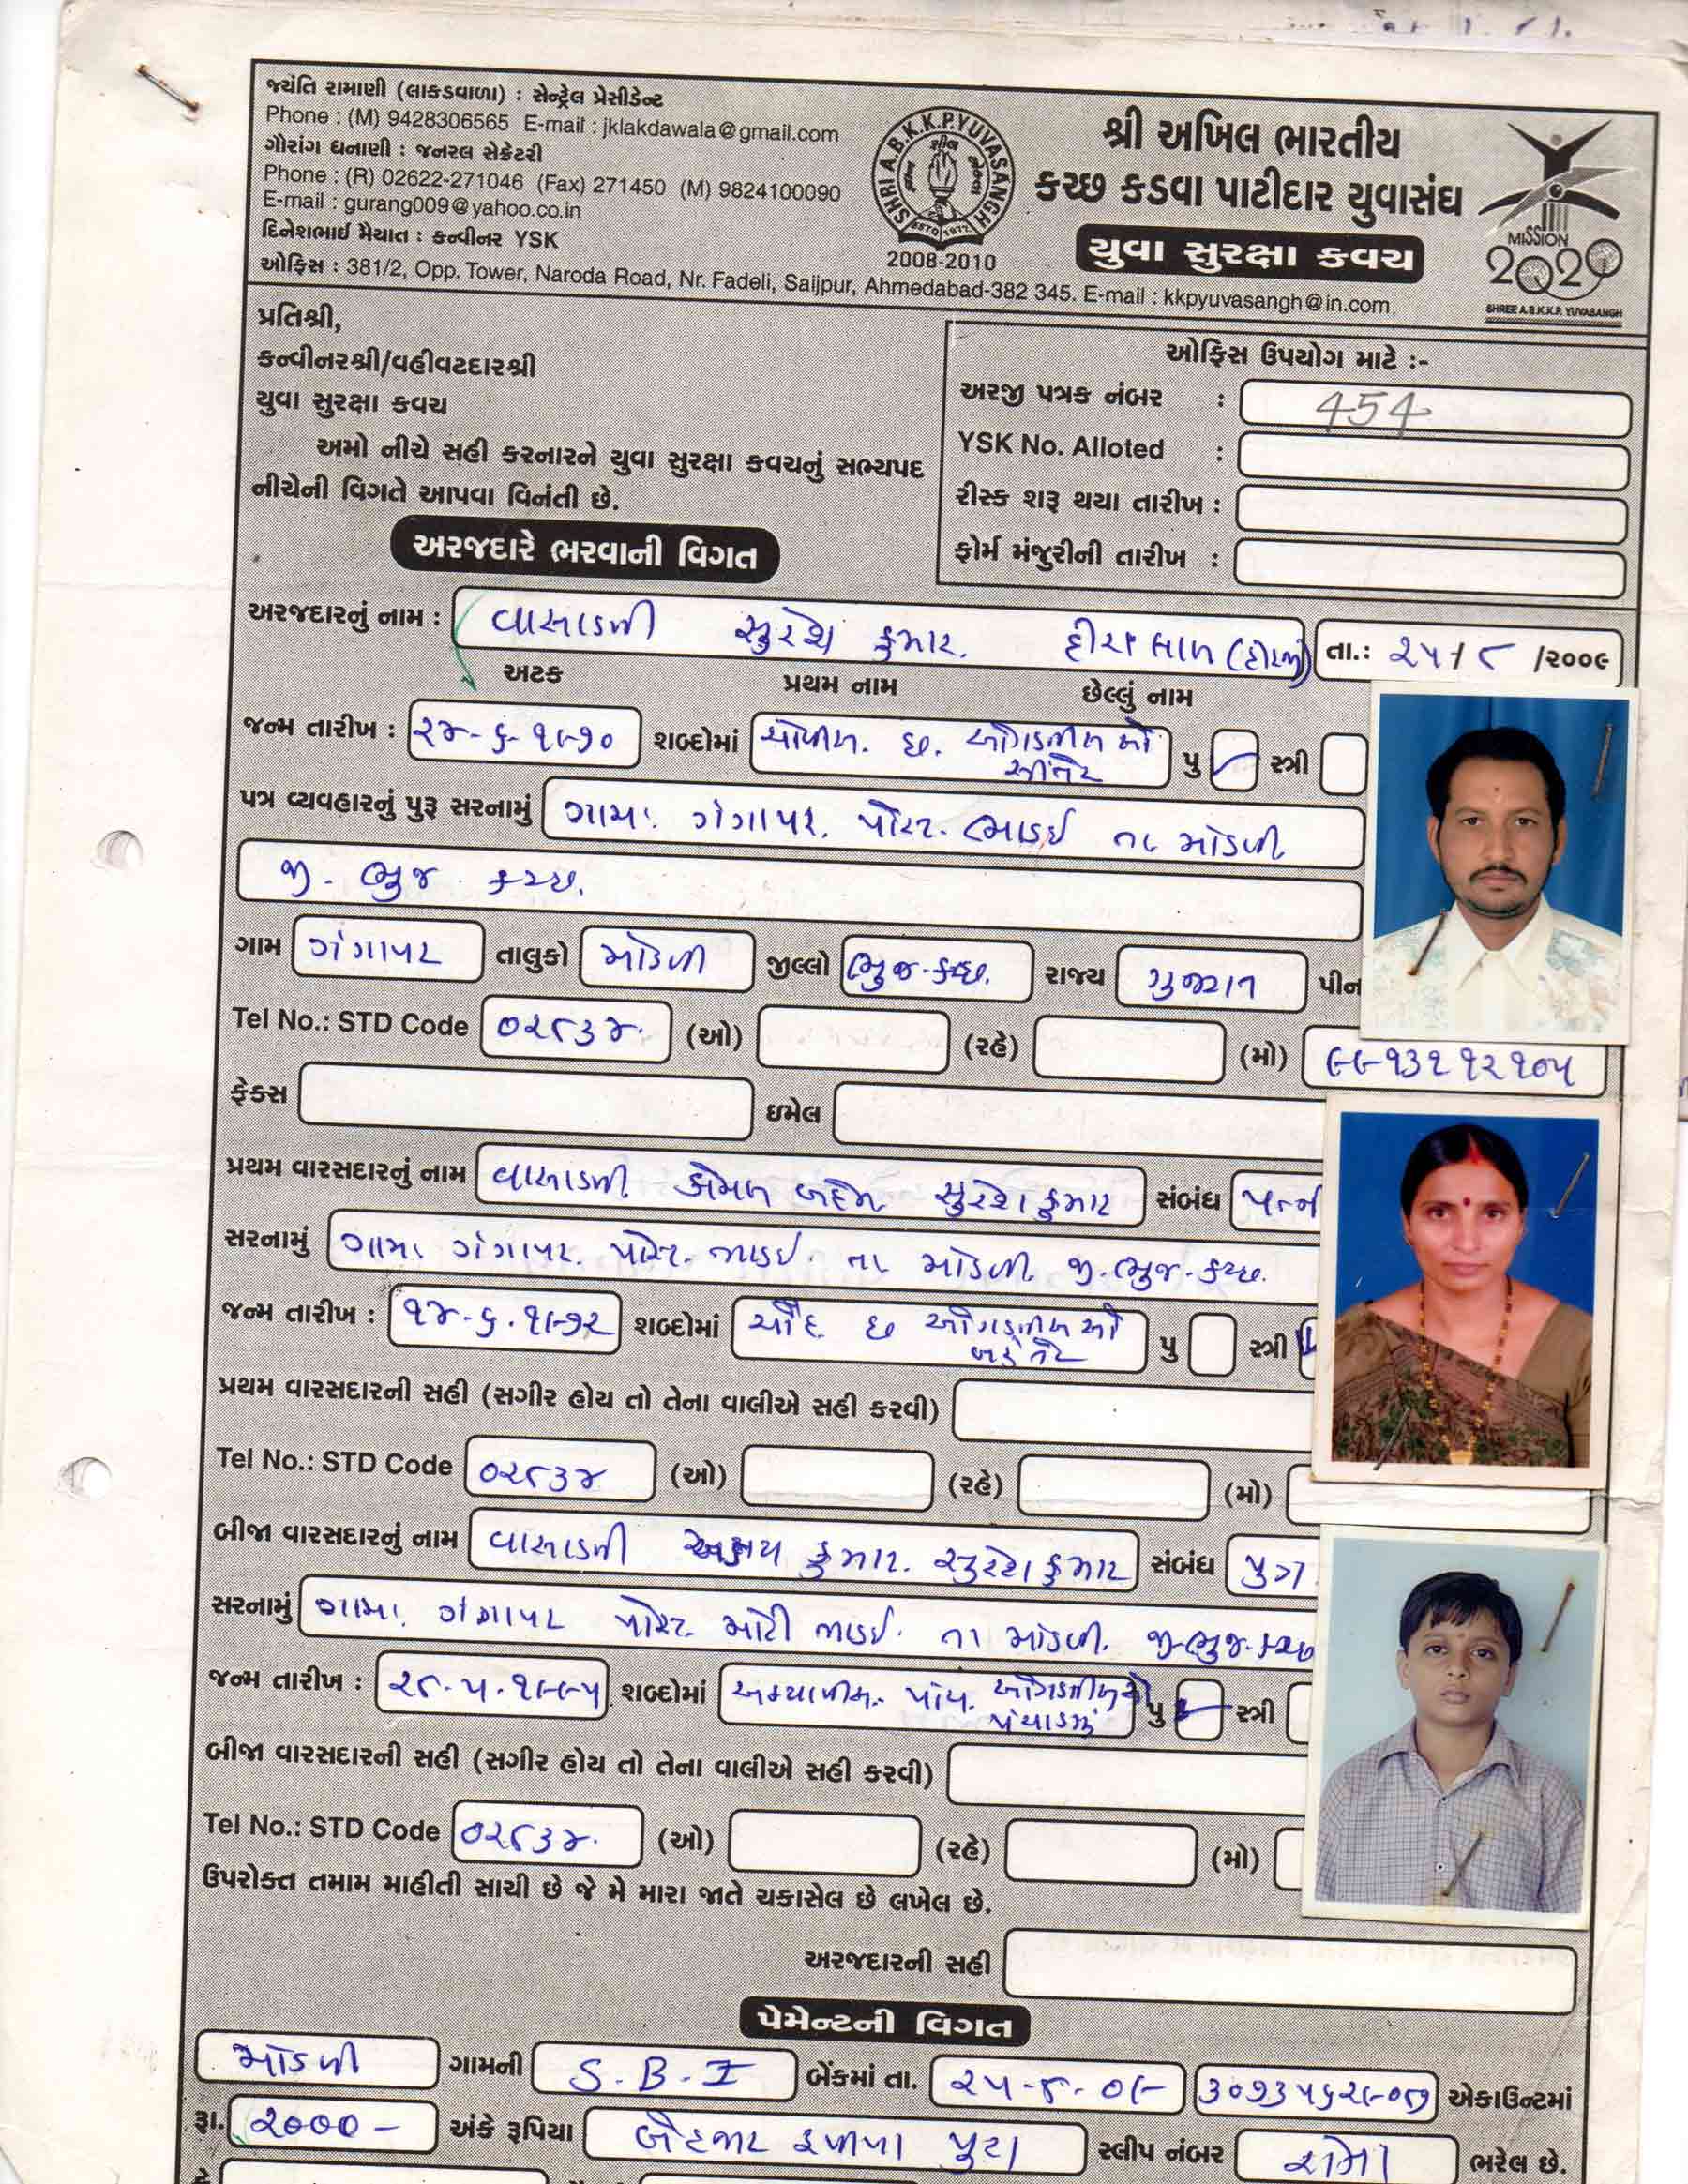 જયંતિ રામાણી (લાકડવાળા) : સેન્ટ્રેલ પ્રેસીડેન્ટ
Phone : (M) 9428306565 E-mail : jklakdawala@gmail.com
ગૌરાંગ ધનાણી : જનરલ સેક્રેટરી
Phone : (R) 02622-271046 (Fax) 271450 (M) 9824100090
E-mail : gurang009@yahoo.co.in
દિનેશભાઈ મૈયાત : કન્વીનર YSK
ઓફિસ : 381/2, Opp. Tower, Naroda Road, Nr. Fadeli, Saijpur, Ahmedabad-382 345. E-mail : kkpyuvasangh@in.com.
SHRI A.B.K.K.P. YUVASANGH
ESTD 1977
2008-2010
શ્રી અખિલ ભારતીય
કચ્છ કડવા પાટીદાર યુવાસંઘ
યુવા સુરક્ષા કવચ
MISSION
2020
SHREE A.B.K.K.P. YUVASANGH
પ્રતિશ્રી,
કન્વીનરશ્રી/વહીવટદારશ્રી
યુવા સુરક્ષા કવચ
અમો નીચે સહી કરનારને યુવા સુરક્ષા કવચનું સભ્યપદ
નીચેની વિગતે આપવા વિનંતી છે.
ઓફિસ ઉપયોગ માટે :-
અરજી પત્રક નંબર : 454
YSK No. Alloted :
રીસ્ક શરૂ થયા તારીખ :
ફોર્મ મંજુરીની તારીખ :
અરજદારે ભરવાની વિગત
અરજદારનું નામ : વાસાડની સુરેશ કુમાર. હીરાલાલ તા.: ૨૫/૮ /૨૦૦૯
અટક પ્રથમ નામ છેલ્લું નામ
જન્મ તારીખ : ૨૪-૬-૧૯૭૦ શબ્દોમાં ચોવીસ. છ. ઓગણીસ સો સીતેર પુ સ્ત્રી
પત્ર વ્યવહારનું પુરૂ સરનામું ગામ. ગંગાપર. પોસ્ટ. ભાડઈ તા માંડવી
જી. ભુજ કચ્છ.
ગામ ગંગાપર તાલુકો માંડવી જીલ્લો ભુજ-કચ્છ. રાજ્ય ગુજરાત પીન
Tel No.: STD Code ૦૨૮૩૪ (ઓ) (રહે) (મો) ૯૯૧૩૧૧૨૧૦૫
ફેક્સ ઇમેલ
પ્રથમ વારસદારનું નામ વાસાડની કોમલ બહેન સુરેશ કુમાર સંબંધ પત્ની
સરનામું ગામ ગંગાપર. પોસ્ટ. ભાડઈ. તા માંડવી જી. ભુજ-કચ્છ.
જન્મ તારીખ : ૧૪-૬-૧૯૭૨ શબ્દોમાં ચૌદ છ ઓગણીસ સો બહોતેર પુ સ્ત્રી
પ્રથમ વારસદારની સહી (સગીર હોય તો તેના વાલીએ સહી કરવી)
Tel No.: STD Code ૦૨૮૩૪ (ઓ) (રહે) (મો)
બીજા વારસદારનું નામ વાસાડની અક્ષય કુમાર. સુરેશ કુમાર સંબંધ પુત્ર
સરનામું ગામ. ગંગાપર પોસ્ટ મોટી ભાડઈ. તા માંડવી. જી-ભુજ-કચ્છ
જન્મ તારીખ : ૨૮-૫-૧૯૯૫ શબ્દોમાં અઠ્યાવીસ. પાંચ. ઓગણીસ સો પંચાણું પુ સ્ત્રી
બીજા વારસદારની સહી (સગીર હોય તો તેના વાલીએ સહી કરવી)
Tel No.: STD Code ૦૨૮૩૪ (ઓ) (રહે) (મો)
ઉપરોક્ત તમામ માહીતી સાચી છે જે મે મારા જાતે ચકાસેલ છે લખેલ છે.
અરજદારની સહી
પેમેન્ટની વિગત
માંડવી ગામની S.B.I બેંકમાં તા. ૨૫-૮-૦૯ એકાઉન્ટમાં
રૂા. ૨૦૦૦- અંકે રૂપિયા બે હજાર રૂપીયા પુરા સ્લીપ નંબર ભરેલ છે.